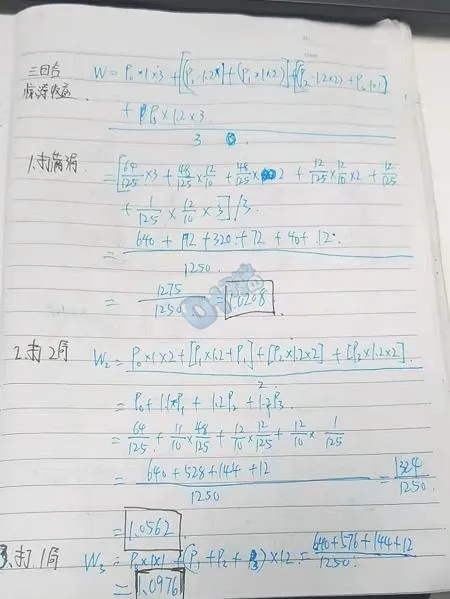 三回合 W = P₀×1×3 + [(P₁·1.2×1)+(P₁×1×2)]+[(P₂·1.2×2)+P₂×1×1]
收益 + P₃×1.2×3
3
1.打满局 = [64/125×3 + 48/125×12/10 + 48/125×2 + 12/125×12/10×2 + 12/125
+ 1/125×12/10×3]/3
= 640 + 192 + 320 + 72 + 40 + 12
1250
= 1275/1250 = 1.0208
2.打2局 W₂ = P₀×1×2+[P₁×1.2+P₁]+[P₂×1.2×2] + [P₃×1.2×2]
2
= P₀ + 1.1×P₁ + 1.2P₂ + 1.2P₃
= 64/125 + 11/10×48/125 + 12/10×12/125 + 12/10×1/125
= 640+528+144+12/1250 = 1324/1250
= 1.0562
3.打1局 W₃ = P₀×1×1+(P₁+P₂+P₃)×1.2 = 640+576+144+12/1250
= 1.0976